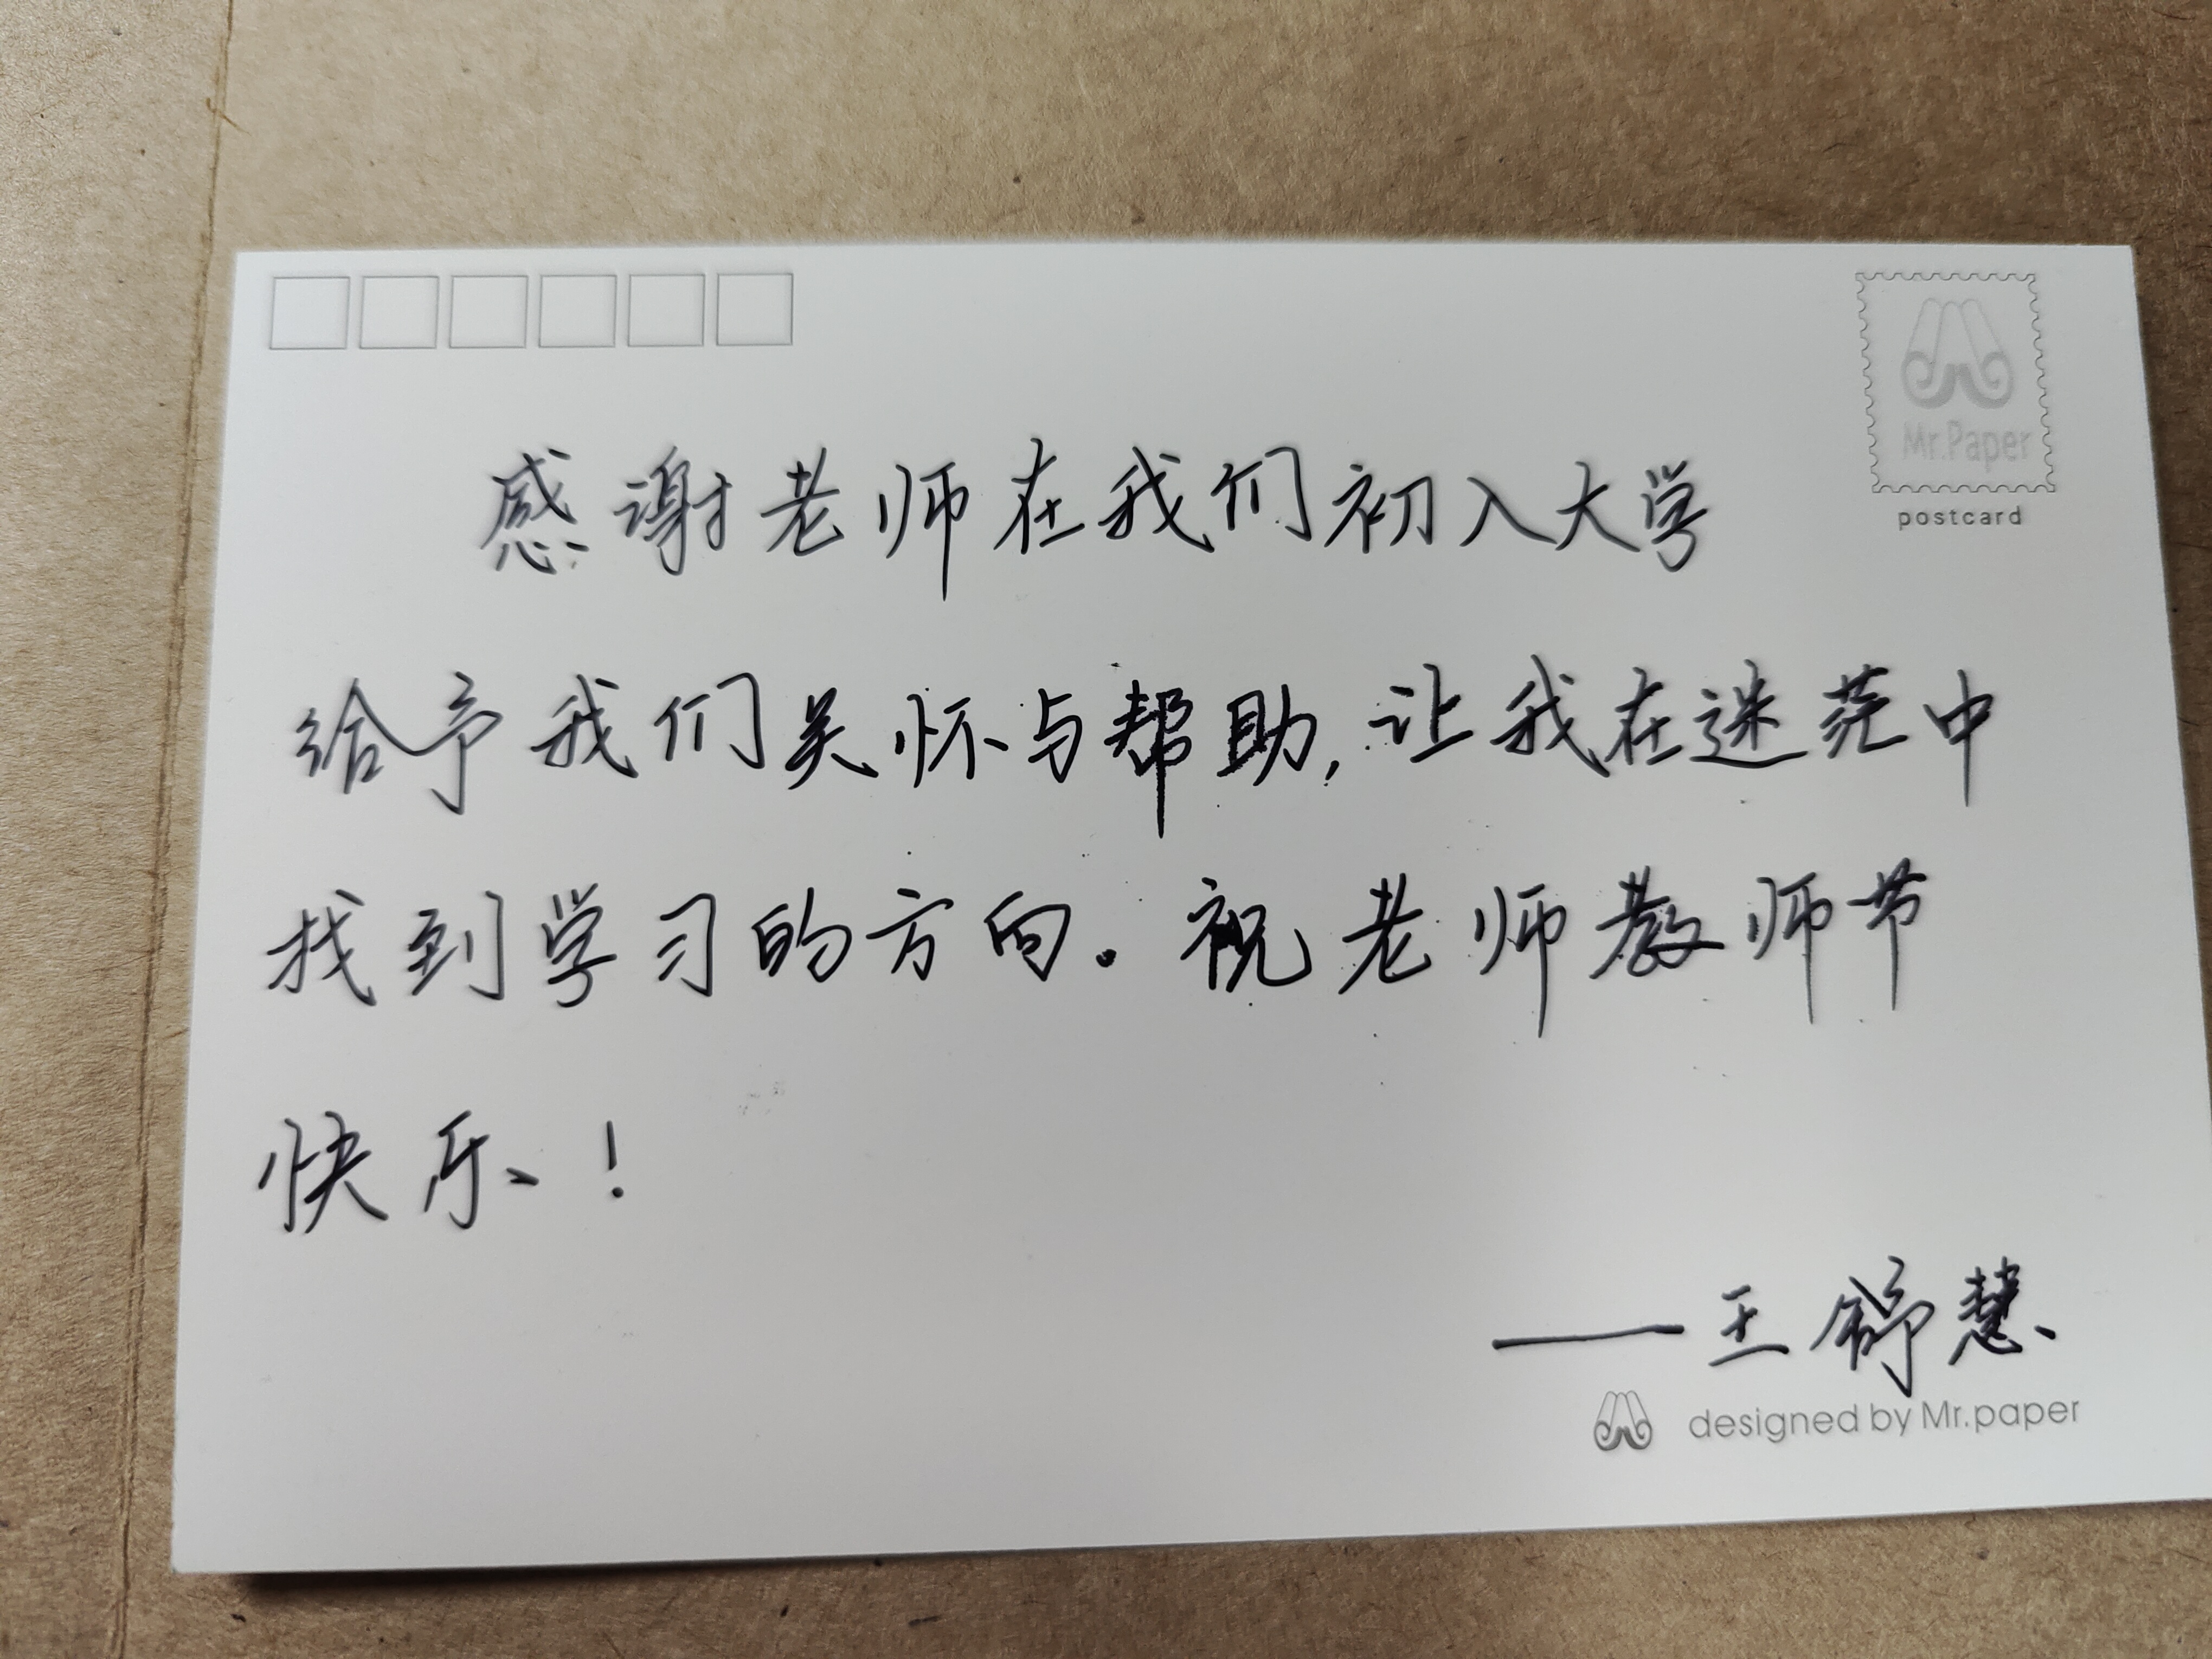 Mr.Paper
postcard
感谢老师在我们初入大学
给予我们关怀与帮助,让我在迷茫中
找到学习的方向.祝老师教师节
快乐!
——王舒慧
designed by Mr.paper